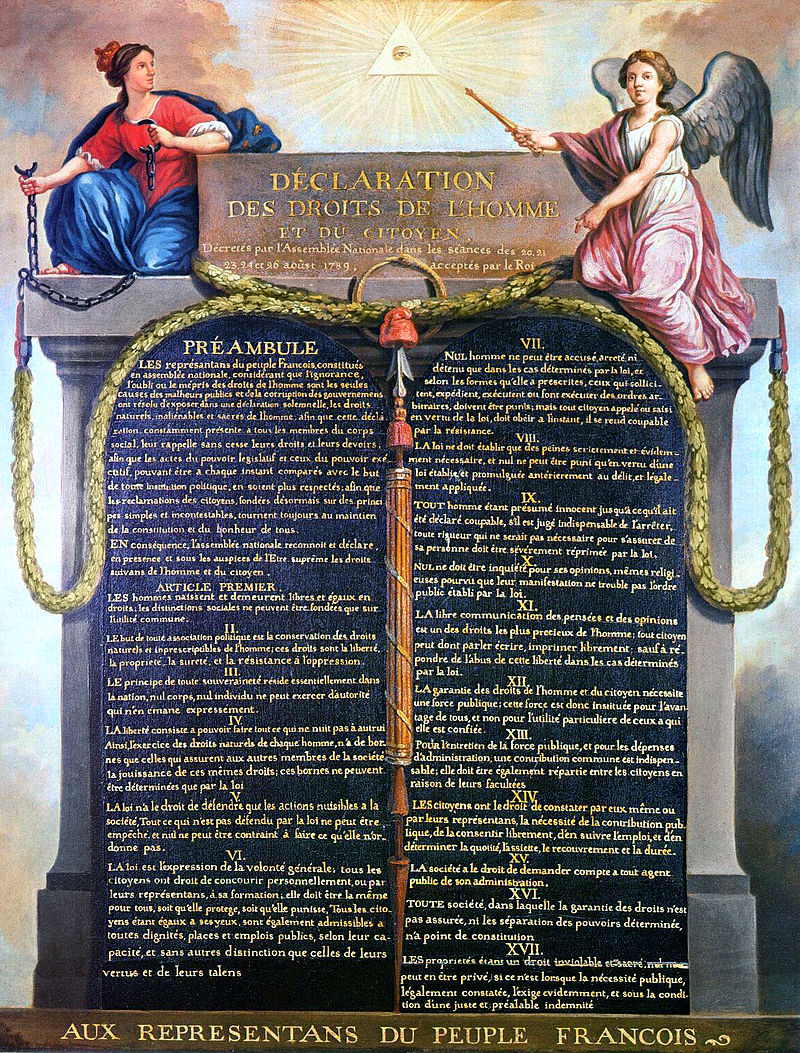 DÉCLARATION
DES DROITS DE L'HOMME
ET DU CITOYEN,
Décretés par l'Assemblée Nationale dans les séances des 20. 21
23. 24 et 26 aoûst 1789, acceptés par le Roi
PRÉAMBULE
LES représantans du peuple François, constitués
en assemblée nationale, considérant que l'ignorance,
l'oubli ou le mépris des droits de l'homme sont les seules
causes des malheurs publics et de la corruption des gouvernemens
ont résolu d'exposer dans une déclaration solemnelle, les droits
naturels, inaliénables et sacrés de l'homme; afin que cette décla
ration, constamment présente a tous les membres du corps
social, leur rappelle sans cesse leurs droits et leurs devoirs;
afin que les actes du pouvoir législatif et ceux du pouvoir exé
cutif, pouvant être à chaque instant comparés avec le but
de toute institution politique, en soient plus respectés; afin que
les reclamations des citoyens, fondées désormais sur des princi
pes simples et incontestables, tournent toujours au maintien
de la constitution et du bonheur de tous.
EN conséquence, l'assemblée nationale reconnoit et déclare,
en presence et sous les auspices de l'Etre suprême les droits
suivans de l'homme et du citoyen.
ARTICLE PREMIER.
LES hommes naissent et demeurent libres et égaux en
droits; les distinctions sociales ne peuvent être fondées que sur
l'utilité commune.
II.
LE but de toute association politique est la conservation des droits
naturels et inprescriptibles de l'homme; ces droits sont la liberté,
la propriété, la sureté, et la résistance à l'oppression.
III.
LE principe de toute souveraineté réside essentiellement dans
la nation, nul corps, nul individu ne peut exercer d'autorité
qui n'en emane expressement.
IV.
LA liberté consiste a pouvoir faire tout ce qui ne nuit pas à autrui
Ainsi, l'exercice des droits naturels de chaque homme, n'a de bor
nes que celles qui assurent aux autres membres de la société
la jouissance de ces mêmes droits; ces bornes ne peuvent
être déterminées que par la loi
V.
LA loi n'a le droit de défendre que les actions nuisibles a la
société, Tout ce qui n'est pas défendu par la loi ne peut être
empêché, et nul ne peut être contraint à faire ce qu'elle n'or-
donne pas.
VI.
LA loi est l'expression de la volonté générale; tous les
citoyens ont droit de concourir personnellement, ou par
leurs représentans, à sa formation; elle doit être la même
pour tous, soit qu'elle protege, soit qu'elle punisse, Tous les cito
yens étant égaux a ses yeux, sont également admissibles a
toutes dignités, places et emplois publics, selon leur ca-
pacité, et sans autres distinction que celles de leurs
vertus et de leurs talens
VII.
NUL homme ne peut être accusé, arreté, ni
détenu que dans les cas déterminés par la loi, et
selon les formes qu'elle a prescrites, ceux qui sollici-
tent, expédient, exécutent ou font exécuter des ordres ar-
bitraires, doivent être punis; mais tout citoyen appelé ou saisi
en vertu de la loi, doit obéir a l'instant, il se rend coupable
par la résistance.
VIII.
LA loi ne doit établir que des peines strictement et évidem-
ment nécessaire, et nul ne peut être puni qu'en vertu d'une
loi établie, et promulguée antérierement au délit, et légale-
ment appliquée.
IX.
TOUT homme étant présumé innocent jusqu'a ce qu'il ait
été déclaré coupable, s'il est jugé indispensable de l'arrêter,
toute rigueur qui ne serait pas nécessaire pour s'assurer de
sa personne doit être sévèrement réprimée par la loi.
X.
NUL ne doit être inquiété pour ses opinions, mêmes religi-
euses pourvu que leur manifestation ne trouble pas l'ordre
public établi par la loi.
XI.
LA libre communication des pensées et des opinions
est un des droits les plus precieux de l'homme; tout citoyen
peut dont parler écrire, imprimer librement; sauf à ré-
pondre de l'abus de cette liberté dans les cas déterminés
par la loi.
XII.
LA garantie des droits de l'homme et du citoyen nécessite
une force publique; cette force est donc instituée pour l'avan-
tage de tous, et non pour l'utilité particuliere de ceux a qui
elle est confiée.
XIII.
POUR l'entretien de la force publique, et pour les dépenses
d'administration, une contribution commune est indispen-
sable; elle doit être également répartie entre les citoyens en
raison de leurs facultées
XIV.
LES citoyens ont le droit de constater par eux même ou
par leurs représentans, la nécessité de la contribution pub-
lique, de la consentir librement, d'en suivre l'emploi, et d'en
déterminer la quotité, l'assiette, le recouvrement et la durée.
XV.
LA société a le droit de demander compte a tout agent
public de son administration.
XVI.
TOUTE société, dans laquelle la garantie des droits n'est
pas assurée, ni les séparation des pouvoirs déterminée,
n'a point de constitution
XVII.
LES proprietés étant un droit inviolable et sacré, nul ne
peut en être privé, si ce n'est lorsque la nécessité publique,
légalement constatée, l'exige evidemment, et sous la condi
tion d'une juste et préalable indemnité
AUX REPRESENTANS DU PEUPLE FRANCOIS